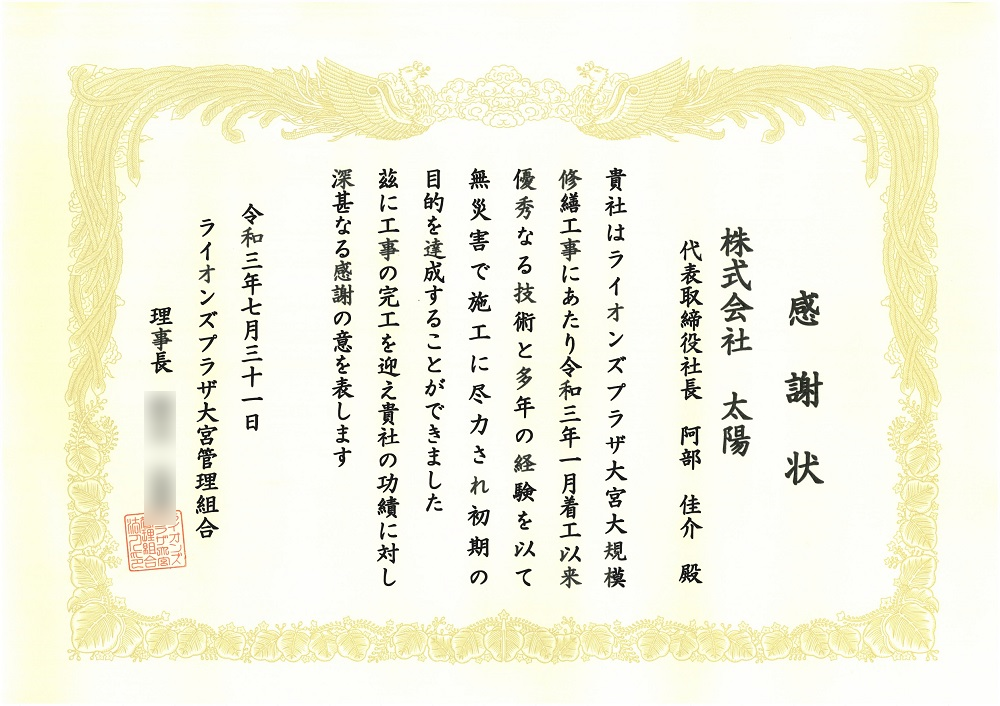 感謝状
株式会社　太陽
代表取締役社長　阿部　佳介　殿
貴社はライオンズプラザ大宮大規模
修繕工事にあたり令和三年一月着工以来
優秀なる技術と多年の経験を以て
無災害で施工に尽力され初期の
目的を達成することができました
茲に工事の完工を迎え貴社の功績に対し
深甚なる感謝の意を表します
令和三年七月三十一日
ライオンズプラザ大宮管理組合
理事長